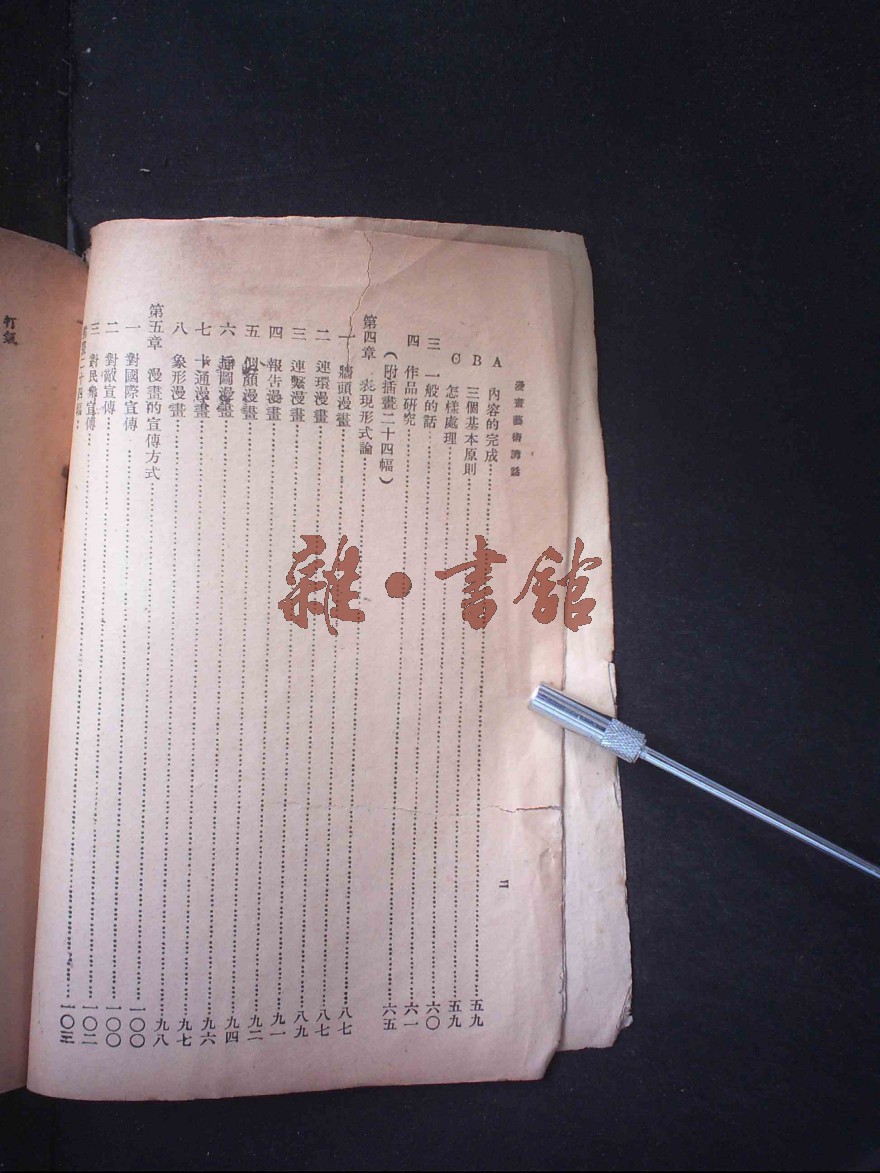 漫畫藝術講話
二
A 內容的完成……五九
B 三個基本原則……五九
C 怎樣處理……六〇
三 一般的話……六一
四 作品研究……六五
(附插畫二十四幅)
第四章 表現形式論……八七
一 牆頭漫畫……八七
二 連環漫畫……八九
三 連繫漫畫……九一
四 報告漫畫……九二
五 個顏漫畫……九四
六 插圖漫畫……九六
七 卡通漫畫……九七
八 象形漫畫……九八
第五章 漫畫的宣傳方式……一〇〇
一 對國際宣傳……一〇〇
二 對敵宣傳……一〇二
三 對民衆宣傳……一〇三
二十四幅
打氣
雜·書館